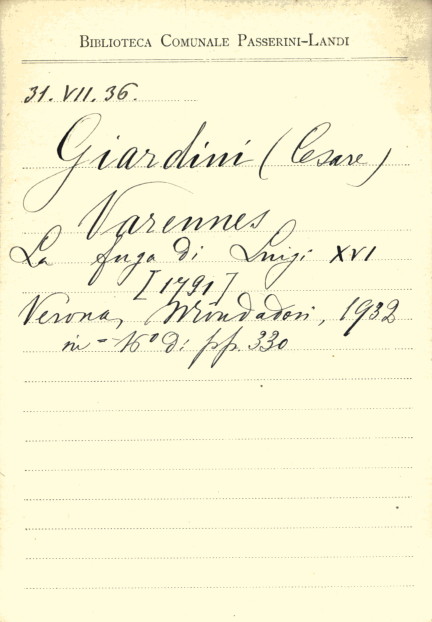 BIBLIOTECA COMUNALE PASSERINI-LANDI
31.VII.36.
Giardini (Cesare)
Varennes
La fuga di Luigi XVI
[1791]
Verona, Mondadori, 1932
in-16° di pp. 330